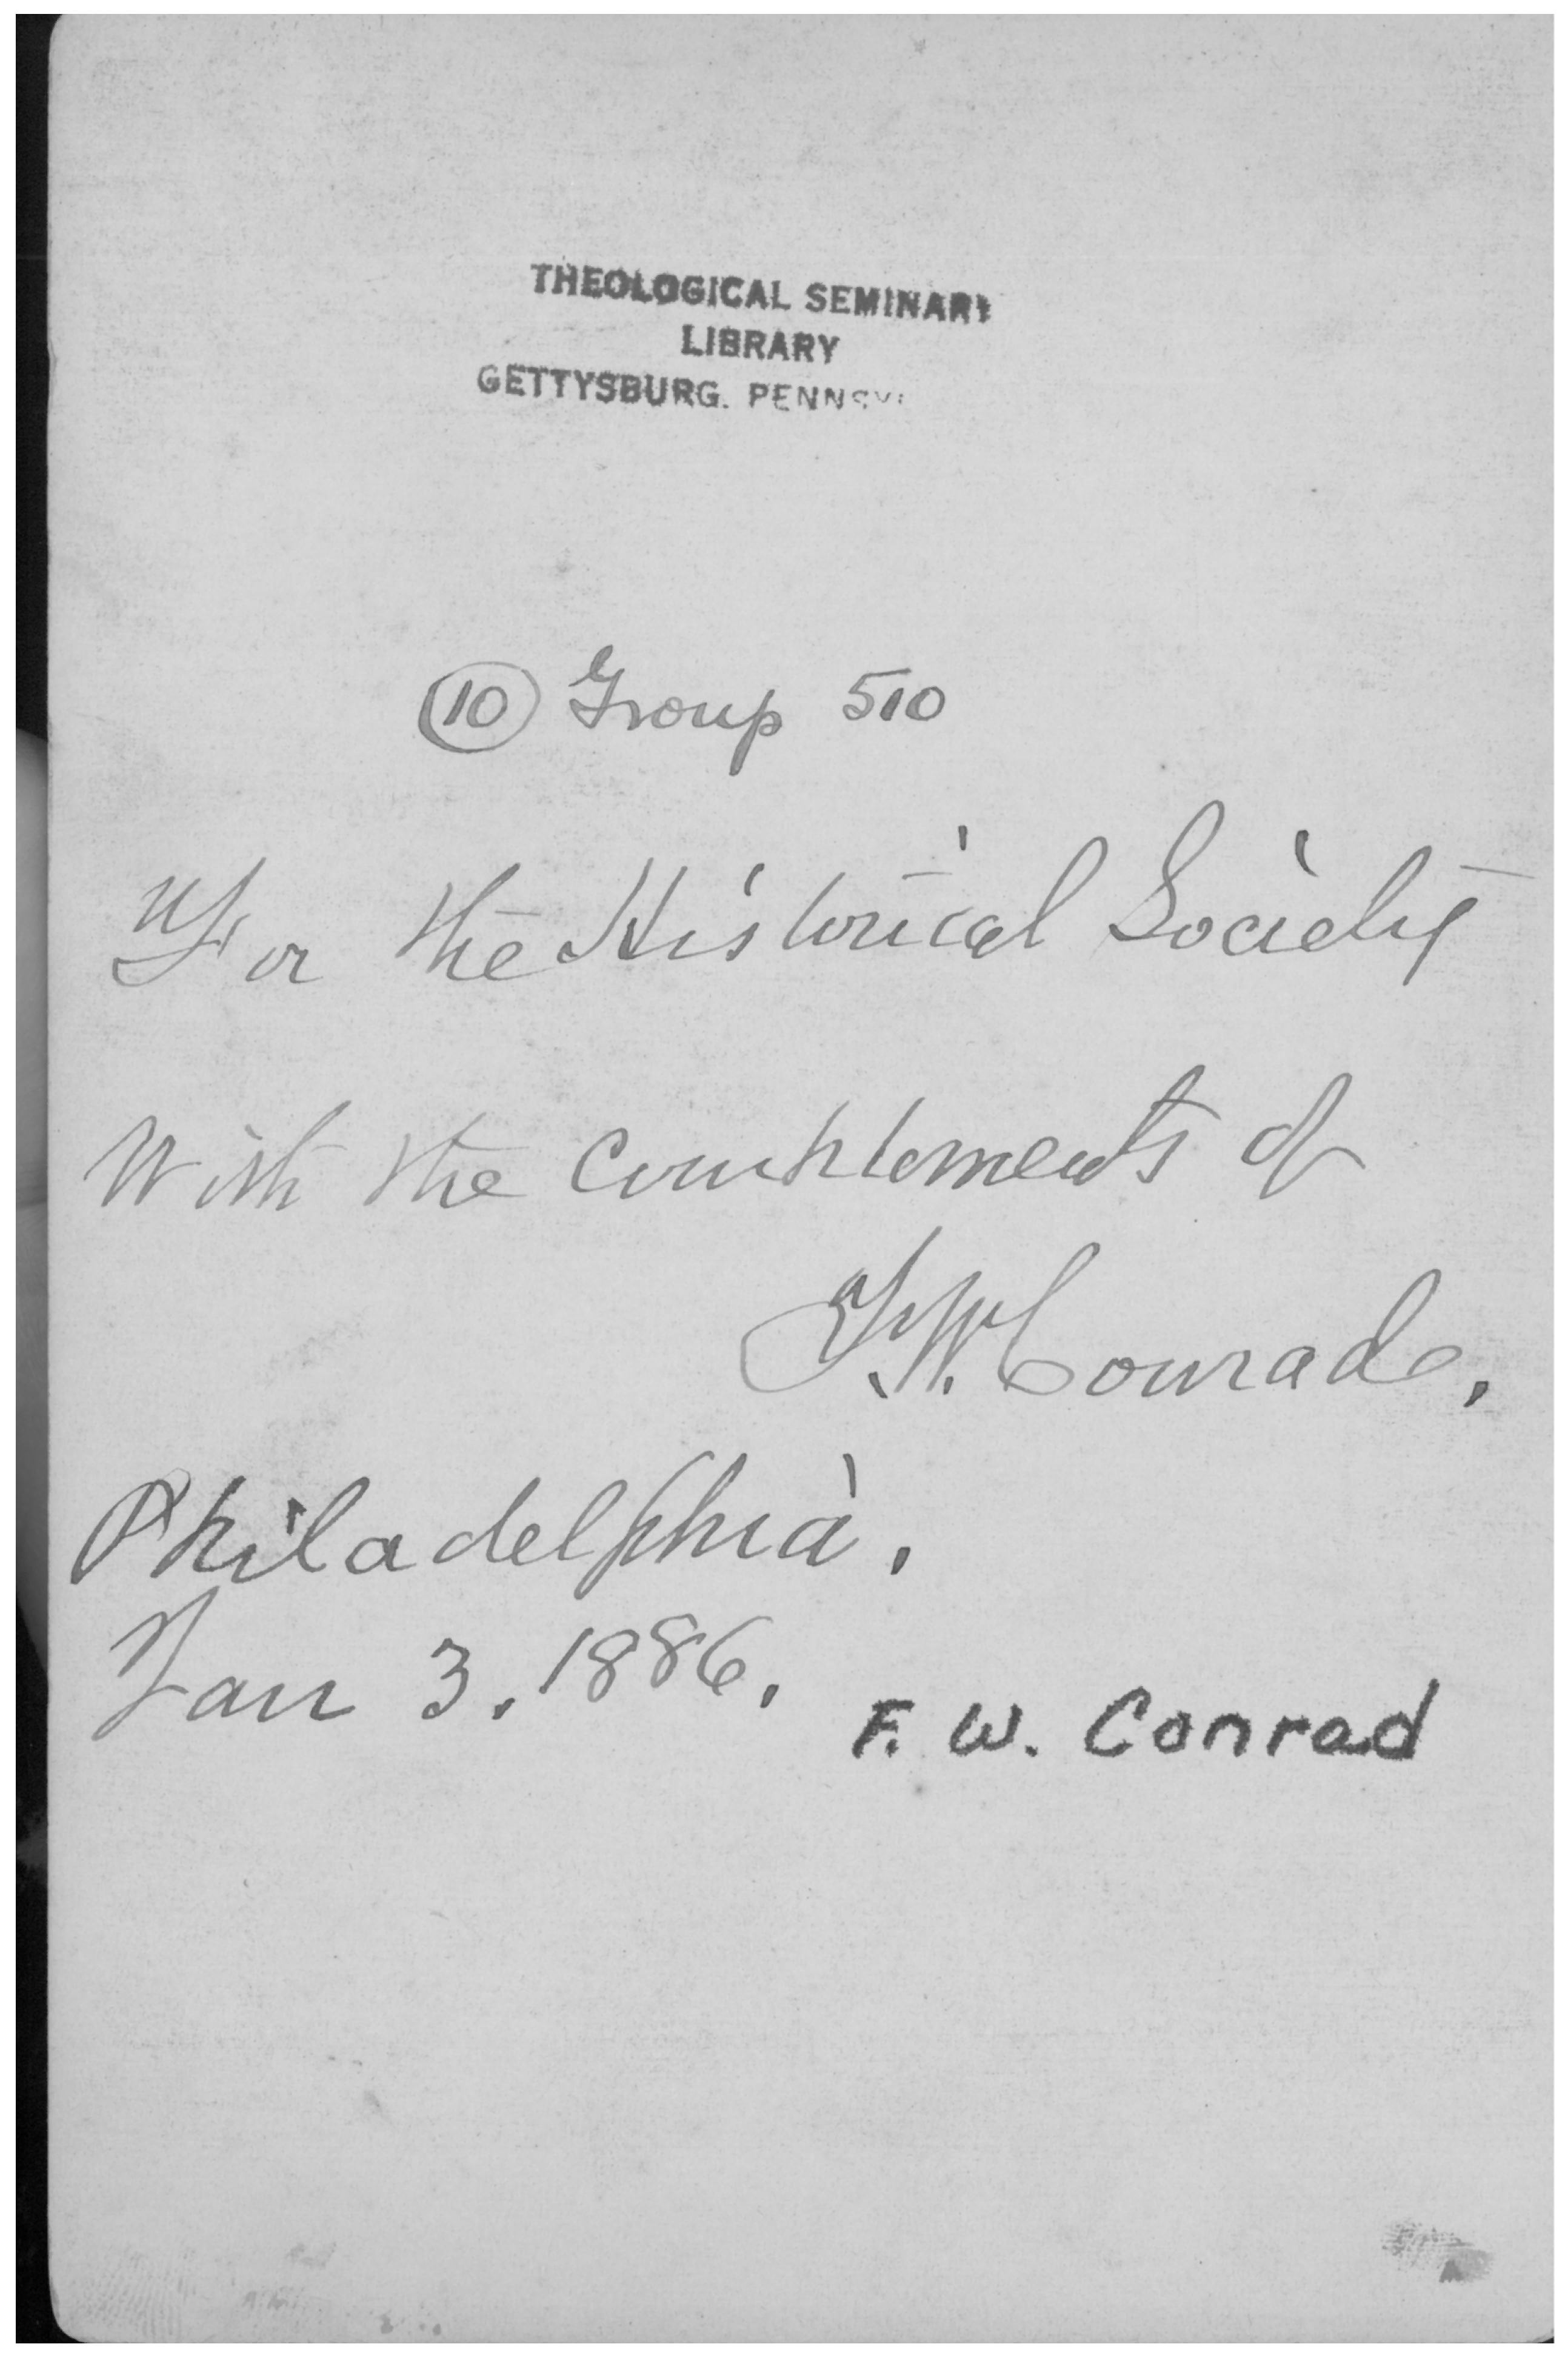 THEOLOGICAL SEMINARY
LIBRARY
GETTYSBURG, PENNSYL
10 Group 510
For the Historical Society
With the Complements of
F. W. Conrad,
Philadelphia,
Jan 3, 1886,
F. W. Conrad